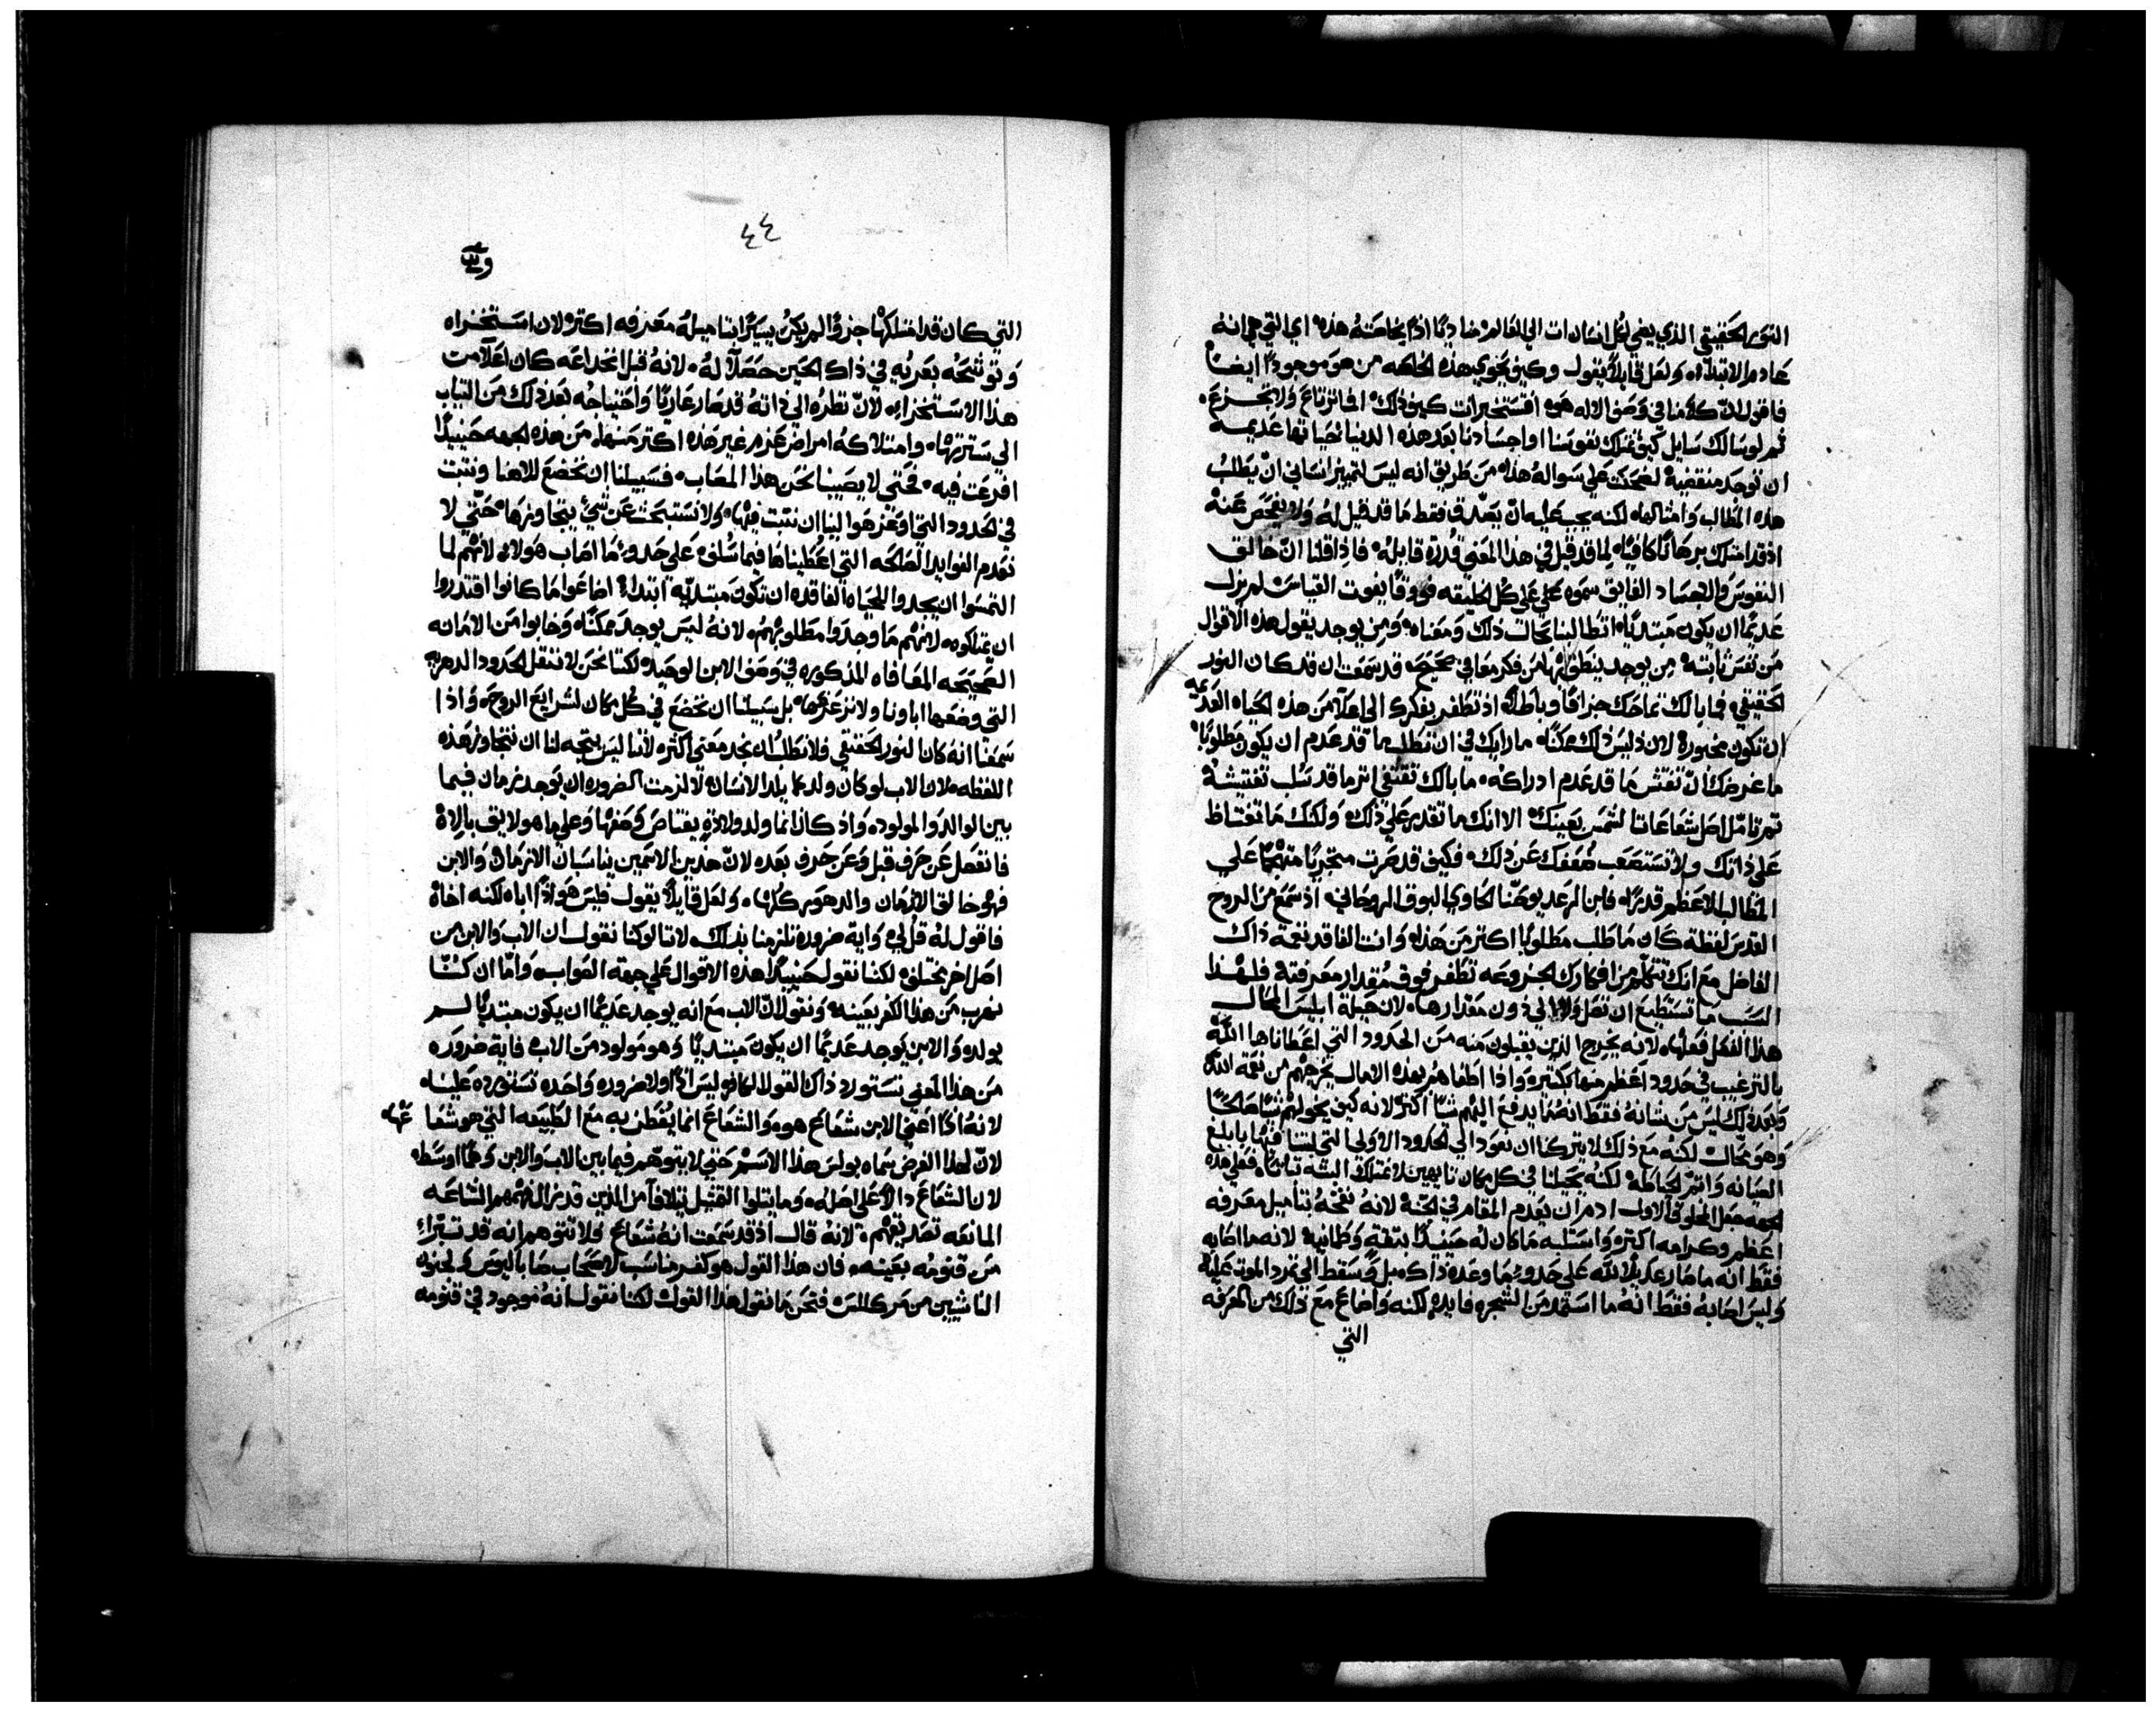 النور الحقيقي الذي يضي لكل انسان ات الي العالم
عادم الابتداء ولعل قايلاً يقول وكيف يحوي هذه الخاصه من هو موجودًا ايضًا
فاقول لان كلامنا في وصف الاله هو افتستخبرات كيف ذلك افما ترتاع ولا تجزع
ثم لو سالك سايل كيف تملك نفوسنا واجسادنا بعد هذه الدنيا حياتها عديمه
ان توجد منقضية لضحكت علي سواله هذا من طريق انه ليس لتمييز انساني ان يطلب
هذه المطالب وامثالها لكنه يجب عليه ان يصدق فقط ما قد قيل له ولا يفحص عنه
اذ قد امتلك برهانًا كافيًا لما قد قيل في هذا المعني قدرة قايله فاذا قلنا ان خالق
النفوس والاجساد الفايق سموه علي كل الخليقه فووقًا يفوت القياس لم يزل
عديمًا ان يكون مبتديًا اتطالبنا بحجات ذلك ومعناه ومن يوجد يقول هذه الاقوال
من نفس ثابته من يوجد ينطق بها من فكر معافي صحيح قد سمعت ان قد كان النور
الحقيقي فما بالك تماحك جزافًا وباطلاً اذ تظفر بفكرك الي اعلا من هذه الحياه العديمه
ان تكون محبورة لان ذلك ليس ممكنًا ما رايك في ان تطلب ما قد عدم ان يكون مطلوبًا
ما غرضك ان تفتش ما قد عدم ادراكه ما بالك تقتفي اثر ما قد سُلب تفتيشه
ثم تامل اصل شعاعاتا لشمس بعينك الا انك ما تقدر علي ذلك ولكنك ما تغتاظ
علي ذاتك ولا تستصعب ضعفك عن ذلك فكيف قد صرت متجريًا متهجمًا علي
المطالب الاعظم قدرًا فابن الرعد يوحنا الحاوي البوق الروحاني اذ سمع من الروح
القدس لفظة كان ما طلب مطلوبًا اكثر من هذا وانت الفاقد نعمة ذاك
الفاضل مع انك تتكلم من افكارك الجزوعه تظفر فوق مقدار معرفته فلهذا
السبب ما تستطيع ان تصل ولا الي دون مقدارها لان حيلة ابليس المحال
هذا الفعل فعلها لانه يخرج الذين يقبلون منه من الحدود التي اعطاناها الله
بالترغيب في حدود اعظم منها بكتير واذا اطغاهم بهذه الامال يخرجهم من نعمة الله
وبعد ذلك ليس من شانه فقط انه ما يدفع اليهم شيا اكثر لانه كيف يخولهم شيًا صالحًا
وهو محال لكنه مع ذلك لا يتركنا ان نعود الي الحدود الاولي التي لبثنا فيها بابلغ
الصيانه واتم الحياطه لكنه يجعلنا في كل مكان تايهين لا نمتلك البته ثباتًا فعلي هذه
الجهه جعل المخلوق الاول ادم ان يعدم المقام في الجنة لانه نفخه بتاميل معرفه
اعظم وكرامه اكثر واستلبه ما كان له حينيذٍ بثقةٍ وطمانيه لانه ما اصابه
فقط انه ما صار عديلاً لله علي حدو بما وعده ذاك بل وسقط الي تمرد الموت عليه
وليس اصابه فقط انه ما استمد من الشجره فايده لكنه واضاع مع ذلك من المعرفه
التي
٤٤
التي كان قد امتلكها جزوًا لم يكن يسيرًا بتاميله معرفه اكثر لان استخزاه
وتوشحه بعريه في ذاك الحين حصلا له لانه قبل انخداعه كان اعلا من
هذا الاستخزاء لان نظره الي ذاته قد صار عاريًا واحتياجه بعد ذلك من الثياب
الي سترتها وامتلاكه امراض عزم غير هذه اكثر منها من هذه الجهه حينيذًا
افرعت فيه فحتي لا يصيبنا نحن هذا المصاب فسبيلنا ان نخضع للاهنا ونثبت
في الحدود التي اوعز هو الينا ان نثبت فيها ولا نستبحث عن شيٍ يتجاوزها حتي لا
نعدم الفوايد الصالحه التي اعطيناها فيما سلف علي حدو ما اصاب هولاء لانهم لما
التمسوا ان يجدوا للحياه الفاقده ان تكون مبتديه ابتدا اضاعوا ما كانوا اقتدروا
ان يمتلكوه لانهم ما وجدوا مطلوبهم لانه ليس يوجد ممكنًا وخابوا من الامانه
الصحيحه المعافاه المذكوره في وصف الابن الوحيد لكننا نحن لا ننقل الحدود الدهريه
التي وضعها اباونا ولا نزعزعها بل سبيلنا ان نخضع في كل مكان لشرايع الروح واذا
سمعنا انه كان النور الحقيقي فلا نطلب ان نجد معني اكثر لاننا ليس يتجه لنا ان نتجاوز هذه
اللفظه لان الاب لو كان ولد كما يلد الانسان للزمت الضروره ان يوجد زمان فيما
بين الوالد والمولود واذ كان انما ولد ولادةٍ يعتاص وصفها وعلي ما هو لايق بالاهٍ
فانفصل عن حرف قبل وعن حرف بعد لان هذين الاسمين يناسبان الازمان والابن
فهو خالق الازمان والدهور كلها ولعل قايلاً يقول فليس هو اذًا اباه لكنه اخاه
فاقول له قل لي واية ضروره تلزمنا بذلك لاننا لو كنا نقول ان الاب والابن من
اصل اخر مختلف لكنا نقول حينيذًا هذه الاقوال علي جهة الصواب واما ان كنا
نهرب من هذا الكفر بعينه ونقول ان الاب مع انه يوجد عديمًا ان يكون مبتديًا لم
يولد والابن يوجد عديمًا ان يكون مبتديًا وهو مولود من الاب فاية ضروره
من هذا المعني تستورد ذاك القول الكافر ليس اذًا ولا ضروره واحده تستورده علينا
لانه اذًا اعني الابن شعاع هو والشعاع انما يفطن به مع الطبيعه التي هو شعاعها
لان لهذا الغرض سماه بولس هذا الاسم حتي لا يتوهم فيما بين الاب والابن وهمًا اوسطه
لان الشعاع دالاً علي اصله وما يتلوا التمثيل يتلافا من الذين قد نزل
المانعه تصديقهم لانه قال اذ قد سمعت انه شعاع فلا تتوهم انه قد تبرا
من قنومه بعينه فان هذا القول هو كفر مناسب لاصحاب صاباليوس ولجنون
الناشيين من مركلس فنحن ما نقول هذا القول لكننا نقول انه موجود في قنومه